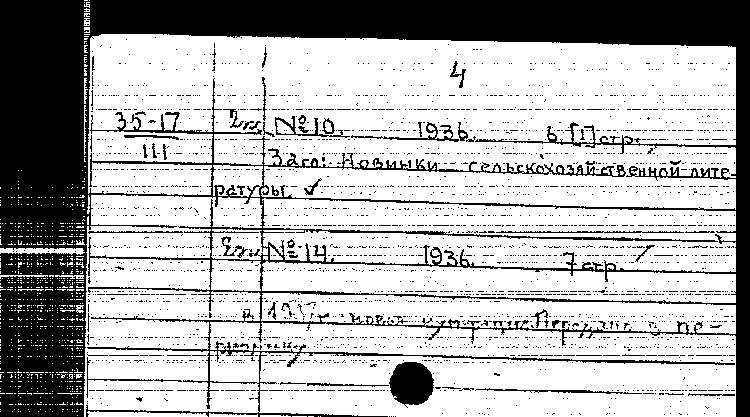 4
35-17 2эк. №10. 1936. 6, [1] стр.
III Загл: Новинки сельскохозяйственной лите-
ратуры. ✓
2эк. №14. 1936. 7 стр.
в новая нумерация. Передана в пе-
риодику.